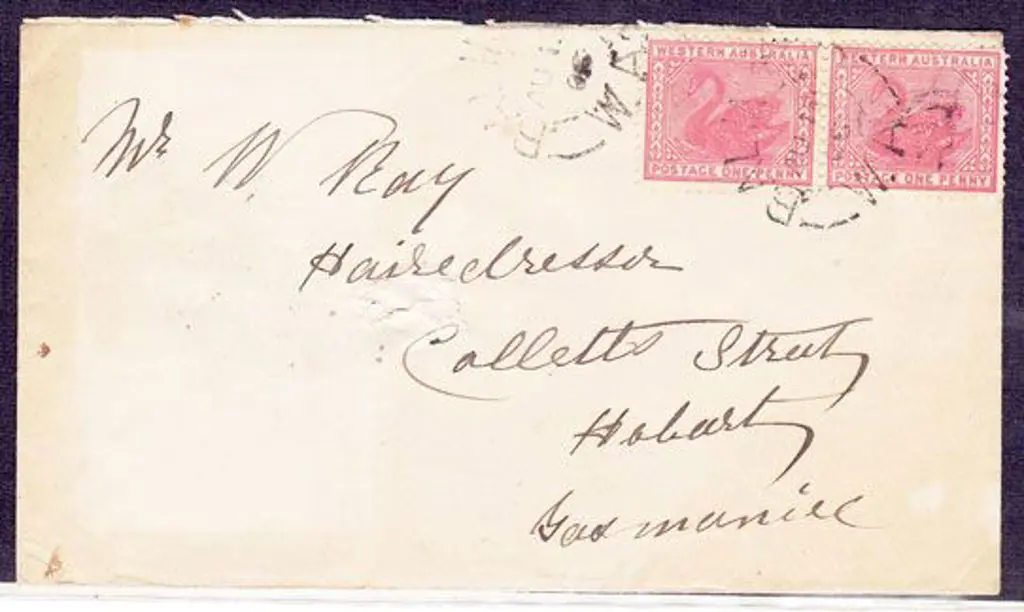 WESTERN AUSTRALIA
POSTAGE ONE PENNY
WESTERN AUSTRALIA
POSTAGE ONE PENNY
Mr W. Ray
Hairedresser
Colletts Street
Hobart
Tasmania